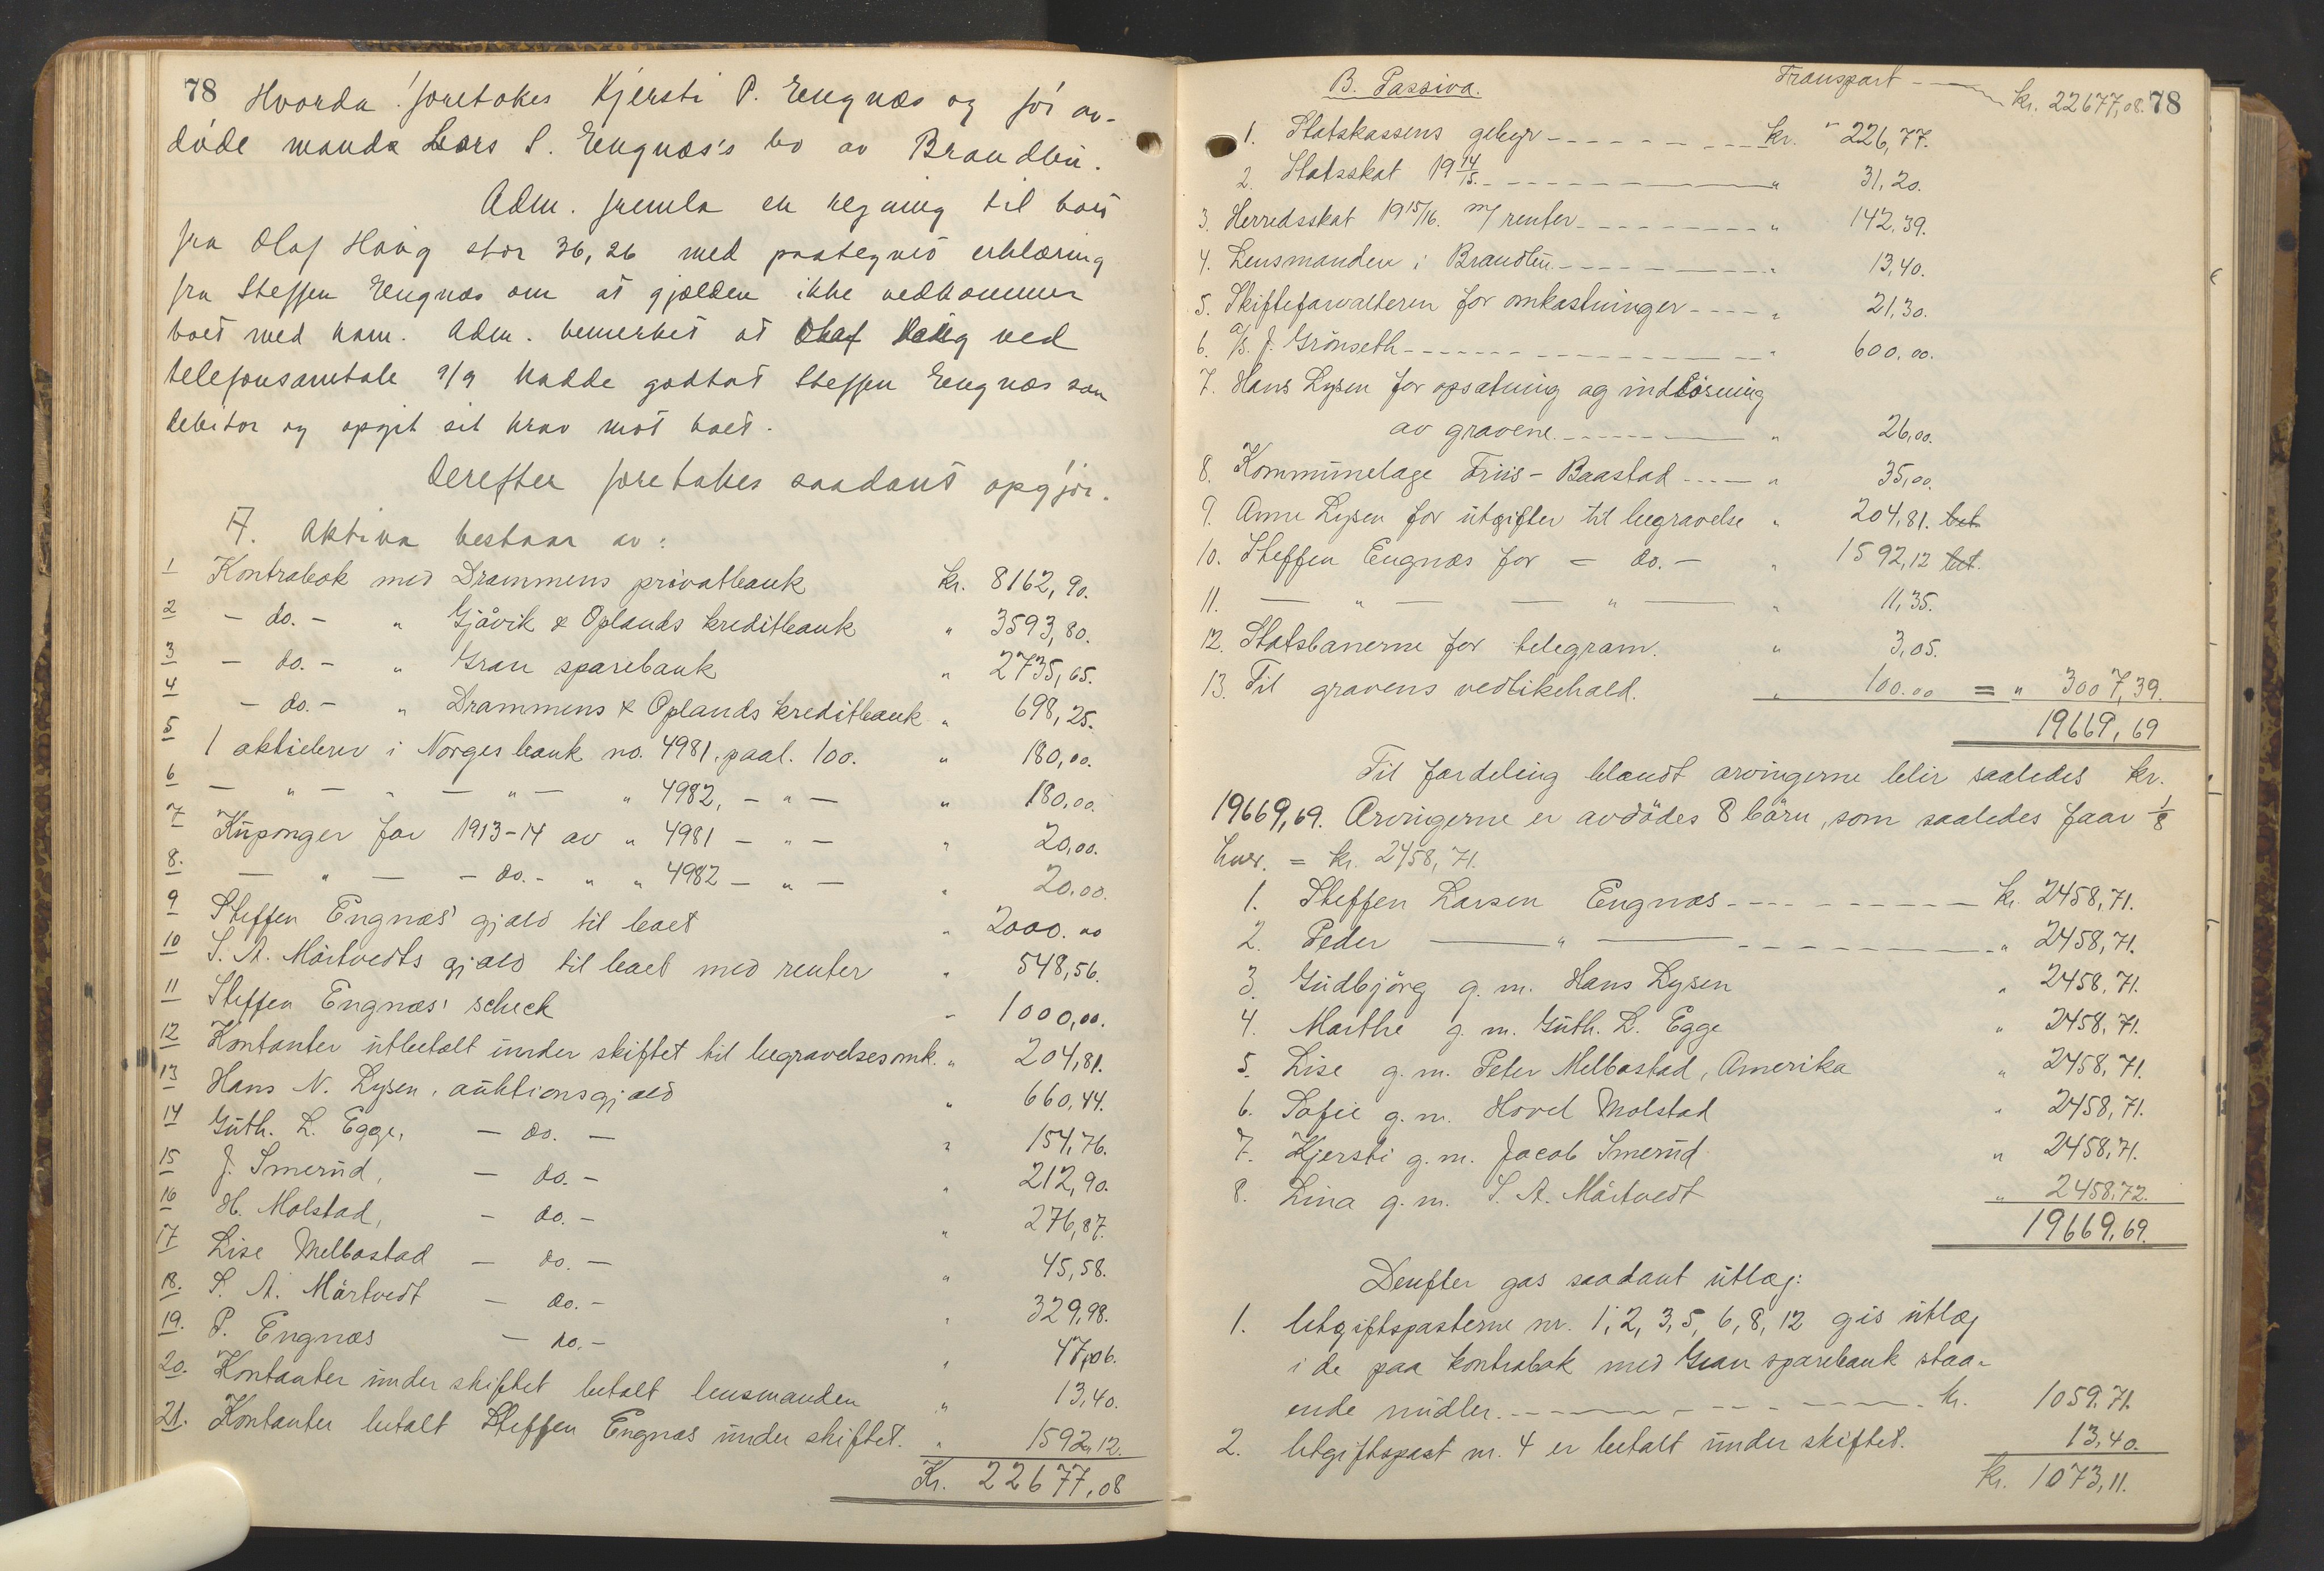 78 Hvorda foretokes Kjersti P. Engnæs og før av-
døde mands Lars S. Engnæs's bo av Brandbu.
Adm. fremla en regning til boet
fra Olaf Haug stor 36,26 med paategnet erklæring
fra Steffen Engnæs om at gjælden ikke vedkommer
boet med ham. Adm. bemerket at Olaf Haug ved
telefonsamtale 9/9 hadde godtat Steffen Engnæs som
debitor og opgit sit krav mot boet.
Derefter foretokes saadant opgjør.
A. Aktiva bestaar av:
1 Kontrabok med Drammens privatbank kr. 8162,90.
2 - do. - " Gjøvik & Oplands kreditbank " 3593,80.
3 - do. - " Gran sparebank " 2735,65.
4 - do. - " Drammens & Oplands kreditbank " 698,25.
5 1 aktiebrev i Norges bank no. 4981, paal. 100. " 180,00.
6 — " — " — " — " 4982, - " - " 180,00.
7 Kuponger for 1913-14 av " 4981 - " - " 20,00.
8. — " — - do. - " " 4982 - " - " 20.00.
9 Steffen Engnæs' gjæld til boet " 2000.00
10 S. A. Mårtvedts gjæld til boet med renter " 548,56.
11 Steffen Engnæs' scheck " 1000,00.
12 Kontanter utbetalt under skiftet til begravelsesomk. " 204,81.
13 Hans N. Lysen, auktionsgjæld " 660,44.
14 Guth. L. Egge, - do. - " 154,76.
15 J. Smerud, - do. - " 212,90.
16 H. Molstad, - do. - " 276,87.
17 Lise Melbostad - do. - " 45,58.
18. S. A. Mårtvedt - do. - " 329,98.
19. P. Engnæs - do. - " 47,06.
20. Kontanter under skiftet betalt lensmanden " 13,40.
21. Kontanter betalt Steffen Engnæs under skiftet. " 1592,12.
Kr. 22677,08
B. Passiva. Transport — kr. 22677,08. 78
1. Statskassens gebyr - - - kr. " 226,77.
2. Statsskat 19 14/15. - - - " 31,20.
3. Herredsskat 19 15/16. m/ renter - - - " 142,39.
4. Lensmanden i Brandbu - - - " 13,40.
5. Skifteforvalteren for omkostninger - - - " 21,30.
6. A/S. J. Grönseth - - - " 600.00.
7. Hans Lysen for opsætning og indlösning
av gravene. - - - " 26,00.
8. Kommunelæge Friis-Baastad - - - " 35,00.
9. Anne Lysen for utgifter til begravelse " 204,81. bet.
10. Steffen Engnæs for - do. - " 1592,12 bet.
11. — " — — " — " 11,35.
12. Statsbanerne for telegram. " 3,05.
13. Til gravens vedlikehold. " 100.00 = " 3007,39.
19669,69
Til fordeling blandt arvingerne blir saaledes kr.
19669,69. Arvingerne er avdödes 8 börn, som saaledes faar 1/8
hver. = kr. 2458,71.
1. Steffen Larsen Engnæs - - - kr. 2458,71.
2. Peder — " — - - - " 2458,71.
3. Gudbjörg g. m. Hans Lysen " 2458,71.
4. Marthe g. m. Guth. L. Egge " 2458,71.
5. Lise g. m. Peter Melbostad, Amerika " 2458,71.
6. Sofie g. m. Hovel Molstad " 2458,71.
7. Kjersti g. m. Jacob Smerud " 2458,71.
8. Lina g. m. S. A. Mårtvedt " 2458,72.
19669,69.
Derefter gös saadant utlæg:
1. Utgiftsposterne nr. 1, 2, 3, 5, 6, 8, 12 gis utlæg
i de paa kontrabok med Gran sparebank staa-
ende midler. - - - kr. 1059,71.
2. Utgiftspost nr. 4 er betalt under skiftet. 13,40.
kr. 1073,11.